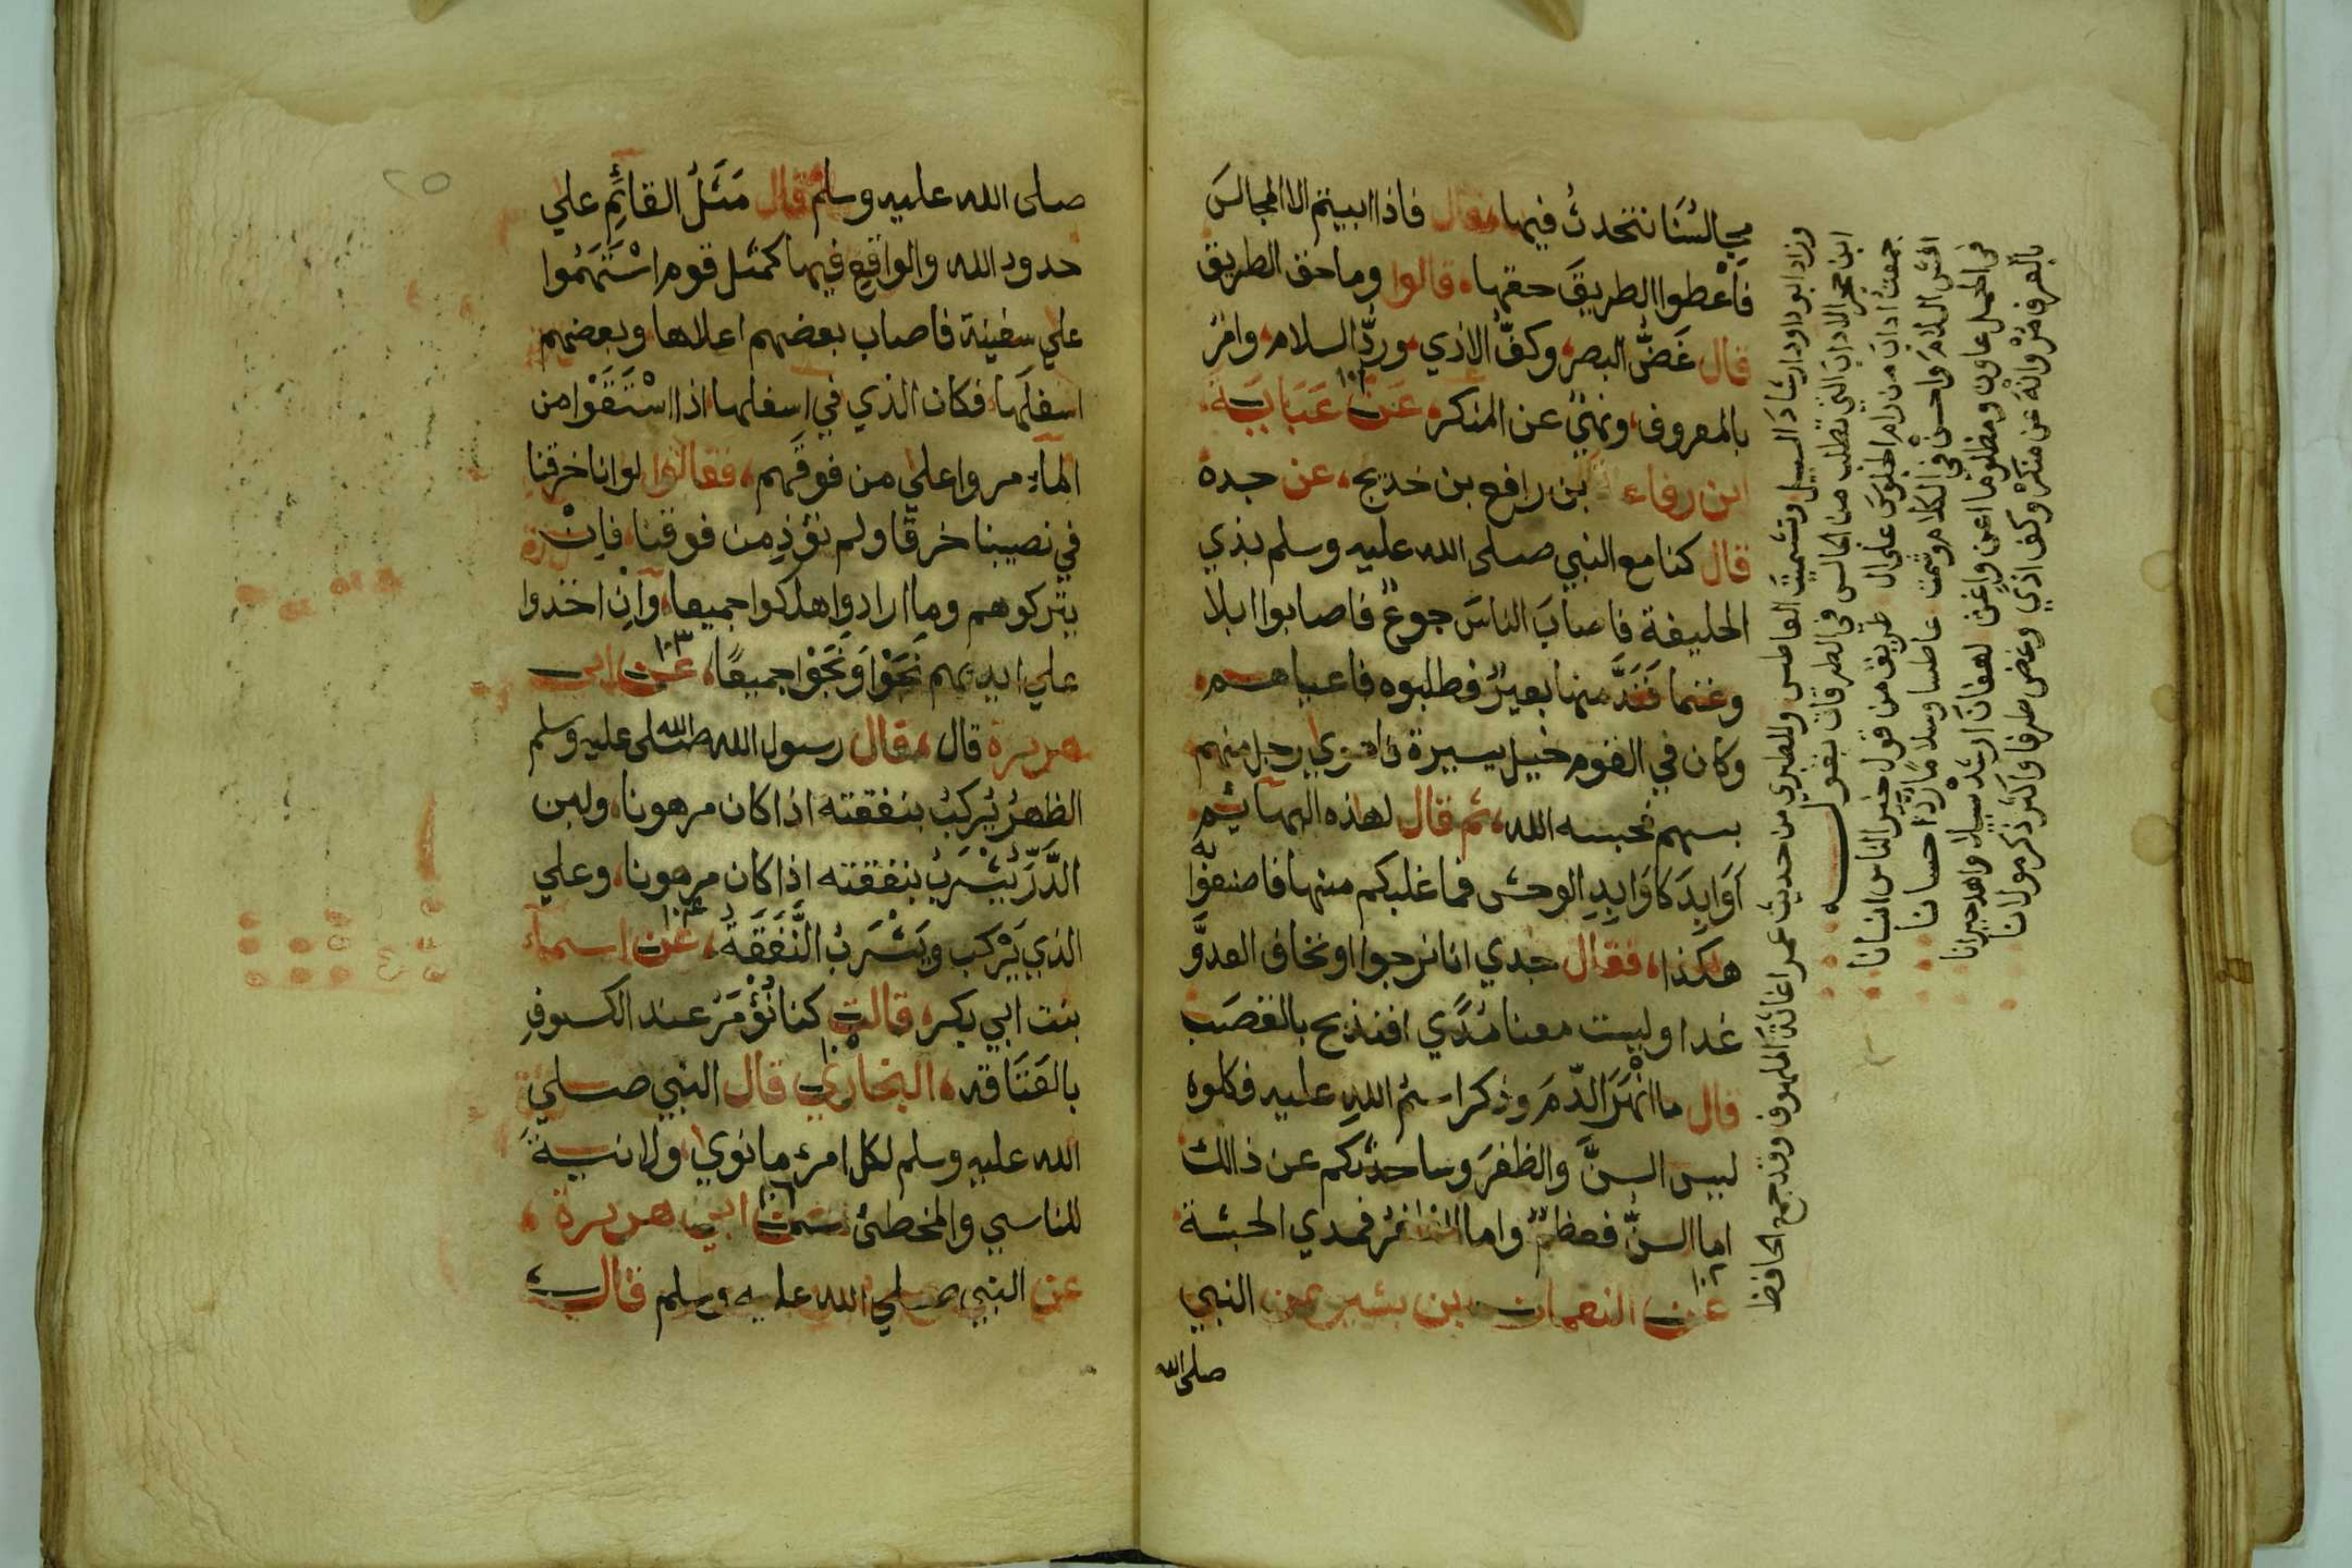 مجالسُنَا نتحدثُ فيها، فقال فاذا ابيتم الا المجالسَ
فأعْطوا الطريقَ حقها، قالوا وما حق الطريق
قال غَضُّ البصر، وكفُّ الاذي، وردُّ السلام، وامرٌ
بالمعروف، ونهيٌ عن المنكر، عَنْ عَبَايَةَ
ابن رفاعة بن رافع بن خديج، عن جده
قال كنا مع النبي صلى الله عليه وسلم بذي
الحليفة فاصابَ الناسَ جوعٌ فاصابوا ابلا
وغنما فَنَدَّ منها بعيرٌ فطلبوه فاعياهم
وكان في القوم خيل يسيرة فاهوي رجل منهم
بسهم فحبسه الله، ثم قال لهذه البهايم
أوَابِدَ كأوَابِدِ الوحش فما غلبكم منها فاصنعوا به
هكذا، فقال جدي انا نرجوا او نخاف العدوَّ
غدا وليست معنا مُدًي افنذبح بالقصَب
قال ما انْهَرَ الدّمَ وذكر اسمُ اللهِ عليه فكلوه
ليس السنَّ والظفرَ وساحدثكم عن ذالك
اما السنّ فعظمٌ واما الظفرُ فمدي الحبشة
١٠٢
عن النعمان بن بشير عن النبي
صلى الله
وزاد ابو داود ارشاد السبيل وتشميت العاطس والطبري من حديث عمر اغاثة الملهوف وقد جمع الحافظ
ابن حجر الاداب التي تطلب من الجالس في الطرقات بقوله
جمعتُ آدابَ من رام الجلوسَ على ال طريق من قول خير الناس انسانا
افش السلامَ واحسنْ في الكلام وشمت عاطسا وسلامًا رُدَّ احسانا
في الحمل عاون ومظلوما اعن واغث لهفانَ ارشدْ سبيلا واهد حيرانا
بالعرف مُرْ وانْهَ عن منكرٍ وكف اذي وغض طرفا واكثر ذكر مولانا
٢٥
صلى الله عليه وسلم قال مَثَلُ القائِمِ علي
حدود الله والواقِعِ فيها كمثل قوم اسْتَهَمُوا
علي سفينة فاصاب بعضهم اعلاها وبعضهم
اسفلَها، فكان الذي في اسفلها اذا اسْتَقَوْا من
الماءِ مروا علي من فوقَهم، فقالوا لو انا خرقنا
في نصيبنا خرقًا ولم نؤذِ من فوقنا، فإنْ
يتركوهم وما ارادوا هلكوا جميعا، وانْ اخذوا
علي ايديهم نَجَوْا وَنَجَوْا جميعًا، عن ابي
١٠٣
هريرة قال، قال رسول الله صلى الله عليه وسلم
الظهرُ يُركبُ بنفقته اذا كان مرهونا، ولبن
الدَّرِّ يُشْرَبُ بنفقته اذا كان مرهونا، وعلي
الذي يَرْكب ويَشْرَبُ النَّفَقَةُ، عن اسماءَ
١٠٤
بنت ابي بكر، قالت كنا نُؤْمَرُ عند الكسوفِ
بالعَتَاقة، البخاري قال النبي صلي
١٠٥
الله عليه وسلم لكل امرئ ما نوي، ولا نيةَ
للناسي والمخطئ، عن ابي هريرة،
١٠٦
عن النبي صلي الله عليه وسلم قال